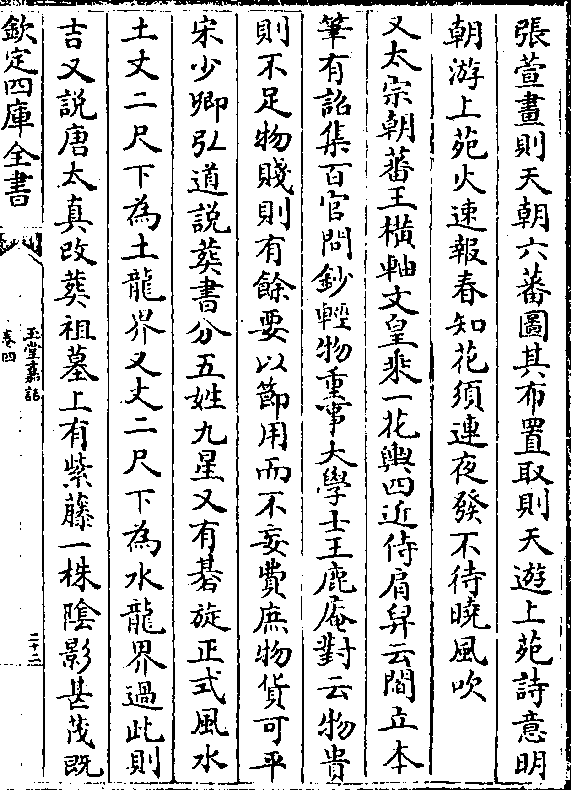 張萱畫則天朝六蕃圖其布置取則天遊上苑詩意明
朝游上苑火速報春知花須連夜發不待曉風吹
又太宗朝蕃王橫軸文皇乘一花輿四近侍肩舁云閻立本
筆有詔集百官問鈔輕物重事大學士王鹿庵對云物貴
則不足物賤則有餘要以節用而不妄費庶物貨可平
宋少卿弘道説葬書分五姓九星又有碁旋正式風水
土丈二尺下為土龍界又丈二尺下為水龍界過此則
吉又説唐太真改葬祖墓上有紫藤一株陰影甚茂既
欽定四庫全書
玉堂嘉話
卷四
二十二